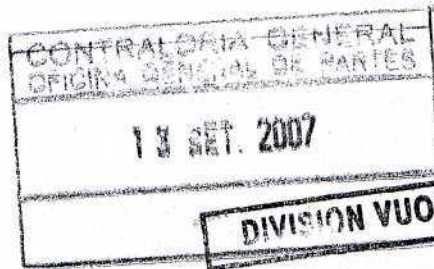 CONTRALORIA GENERAL
OFICINA GENERAL DE PARTES
SET. 2007
DIVISION VUO